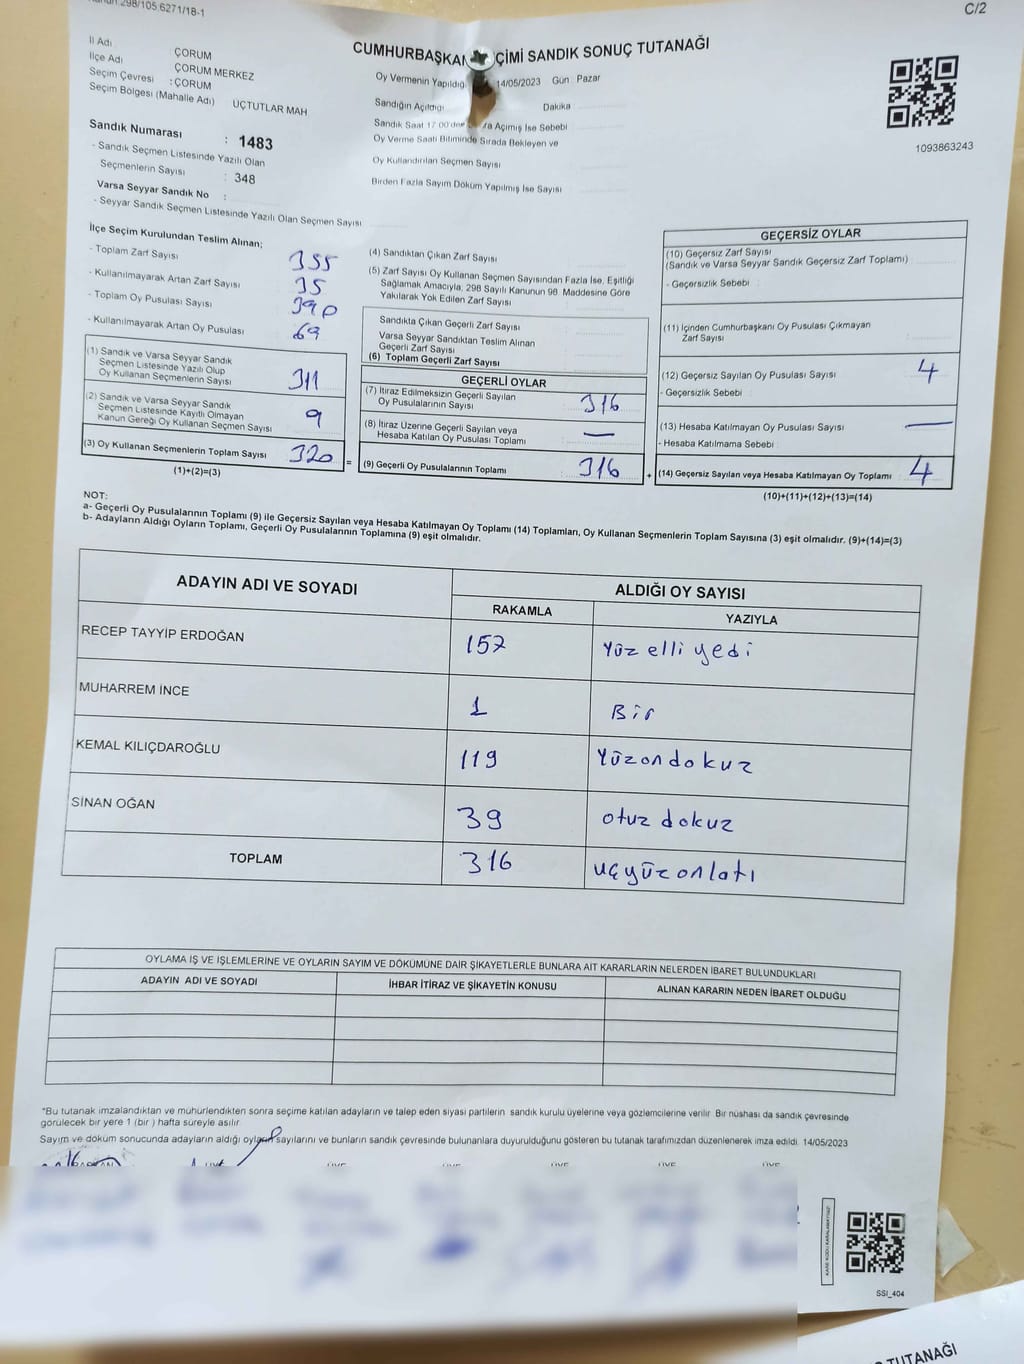 298/105:6271/18-1
C/2
CUMHURBAŞKA ÇİMİ SANDIK SONUÇ TUTANAĞI
İl Adı ÇORUM
İlçe Adı ÇORUM MERKEZ
Seçim Çevresi : ÇORUM
Seçim Bölgesi (Mahalle Adı) UÇTUTLAR MAH
Oy Vermenin Yapıldığı 14/05/2023 Gün Pazar
Sandığın Açıldığı Dakika
Sandık Saat 17:00'den ra Açımış İse Sebebi
Oy Verme Saati Bitiminde Sırada Bekleyen ve
Oy Kullandırılan Seçmen Sayısı
Birden Fazla Sayım Döküm Yapılmış İse Sayısı
1093863243
Sandık Numarası : 1483
- Sandık Seçmen Listesinde Yazılı Olan
Seçmenlerin Sayısı : 348
Varsa Seyyar Sandık No :
- Seyyar Sandık Seçmen Listesinde Yazılı Olan Seçmen Sayısı
İlçe Seçim Kurulundan Teslim Alınan;
- Toplam Zarf Sayısı 355
- Kullanılmayarak Artan Zarf Sayısı 35
- Toplam Oy Pusulası Sayısı 390
- Kullanılmayarak Artan Oy Pusulası 69
(1) Sandık ve Varsa Seyyar Sandık
Seçmen Listesinde Yazılı Olup
Oy Kullanan Seçmenlerin Sayısı 311
(2) Sandık ve Varsa Seyyar Sandık
Seçmen Listesinde Kayıtlı Olmayan
Kanun Gereği Oy Kullanan Seçmen Sayısı 9
(3) Oy Kullanan Seçmenlerin Toplam Sayısı 320
(1)+(2)=(3)
=
(4) Sandıktan Çıkan Zarf Sayısı
(5) Zarf Sayısı Oy Kullanan Seçmen Sayısından Fazla İse, Eşitliği
Sağlamak Amacıyla, 298 Sayılı Kanunun 98. Maddesine Göre
Yakılarak Yok Edilen Zarf Sayısı
Sandıkta Çıkan Geçerli Zarf Sayısı
Varsa Seyyar Sandıktan Teslim Alınan
Geçerli Zarf Sayısı
(6) Toplam Geçerli Zarf Sayısı
GEÇERLİ OYLAR
(7) İtiraz Edilmeksizin Geçerli Sayılan
Oy Pusulalarının Sayısı 316
(8) İtiraz Üzerine Geçerli Sayılan veya
Hesaba Katılan Oy Pusulası Toplamı —
(9) Geçerli Oy Pusulalarının Toplamı 316
+
GEÇERSİZ OYLAR
(10) Geçersiz Zarf Sayısı
(Sandık ve Varsa Seyyar Sandık Geçersiz Zarf Toplamı)
- Geçersizlik Sebebi
(11) İçinden Cumhurbaşkanı Oy Pusulası Çıkmayan
Zarf Sayısı
(12) Geçersiz Sayılan Oy Pusulası Sayısı 4
- Geçersizlik Sebebi
(13) Hesaba Katılmayan Oy Pusulası Sayısı —
- Hesaba Katılmama Sebebi
(14) Geçersiz Sayılan veya Hesaba Katılmayan Oy Toplamı 4
(10)+(11)+(12)+(13)=(14)
NOT:
a- Geçerli Oy Pusulalarının Toplamı (9) ile Geçersiz Sayılan veya Hesaba Katılmayan Oy Toplamı (14) Toplamları, Oy Kullanan Seçmenlerin Toplam Sayısına (3) eşit olmalıdır. (9)+(14)=(3)
b- Adayların Aldığı Oyların Toplamı, Geçerli Oy Pusulalarının Toplamına (9) eşit olmalıdır.
ADAYIN ADI VE SOYADI
ALDIĞI OY SAYISI
RAKAMLA YAZIYLA
RECEP TAYYİP ERDOĞAN 157 Yüz elli yedi
MUHARREM İNCE 1 Bir
KEMAL KILIÇDAROĞLU 119 Yüzondokuz
SİNAN OĞAN 39 otuz dokuz
TOPLAM 316 uçyüzonlatı
OYLAMA İŞ VE İŞLEMLERİNE VE OYLARIN SAYIM VE DÖKÜMÜNE DAİR ŞİKAYETLERLE BUNLARA AİT KARARLARIN NELERDEN İBARET BULUNDUKLARI
ADAYIN ADI VE SOYADI İHBAR İTİRAZ VE ŞİKAYETİN KONUSU ALINAN KARARIN NEDEN İBARET OLDUĞU
*Bu tutanak imzalandıktan ve mühürlendikten sonra seçime katılan adayların ve talep eden siyasi partilerin sandık kurulu üyelerine veya gözlemcilerine verilir. Bir nüshası da sandık çevresinde
görülecek bir yere 1 (bir) hafta süreyle asılır.
Sayım ve döküm sonucunda adayların aldığı oyların sayılarını ve bunların sandık çevresinde bulunanlara duyurulduğunu gösteren bu tutanak tarafımızdan düzenlenerek imza edildi. 14/05/2023
SSI_404
TUTANAĞI